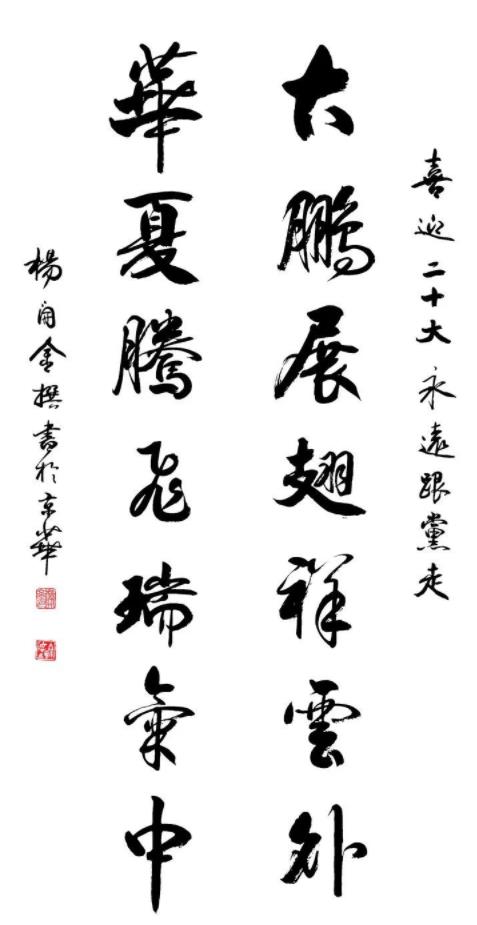 喜迎二十大永遠跟黨走
大鵬展翅祥雲外
華夏騰飛瑞氣中
楊自金撰書於京華